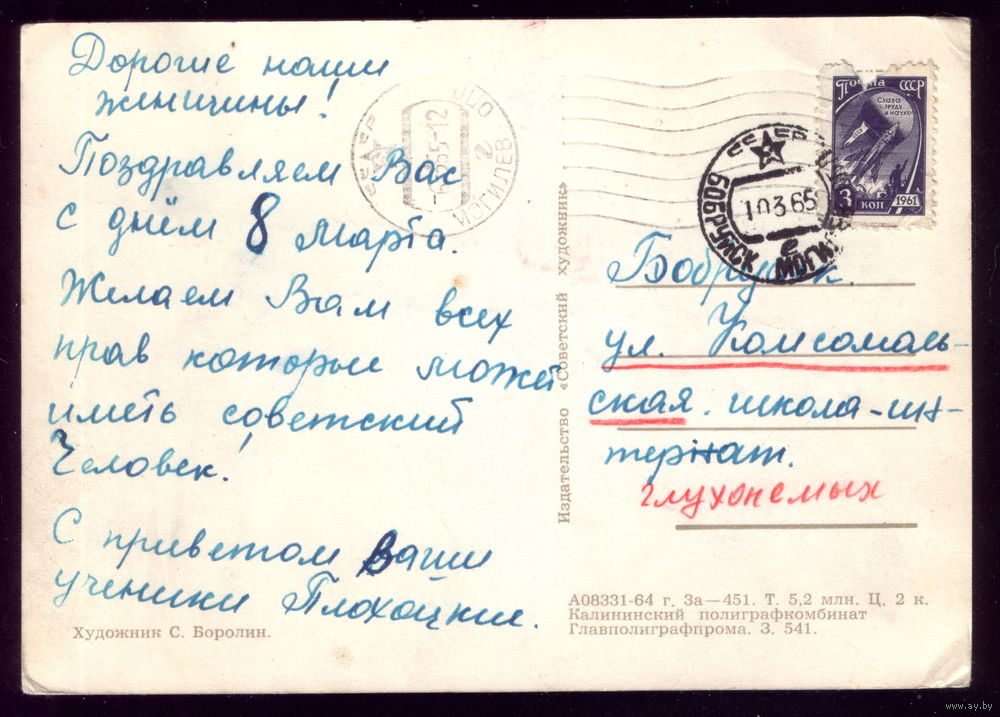 Дорогие наши
женщины!
Поздравляем Вас
с днём 8 марта.
Желаем Вам всех
прав которые может
иметь советский
Человек!
С приветом Ваши
ученики Плохоцкие.
Художник С. Боролин.
Издательство «Советский художник»
Почта СССР
Слава
труду
и науке
3 коп 1961
БОБРУЙСК
10 3 65
Бобруйск.
ул. Комсомоль-
ская. школа-ин-
тернат.
глухонемых
А08331-64 г. За—451. Т. 5,2 млн. Ц. 2 к.
Калининский полиграфкомбинат
Главполиграфпрома. З. 541.
www.ay.by